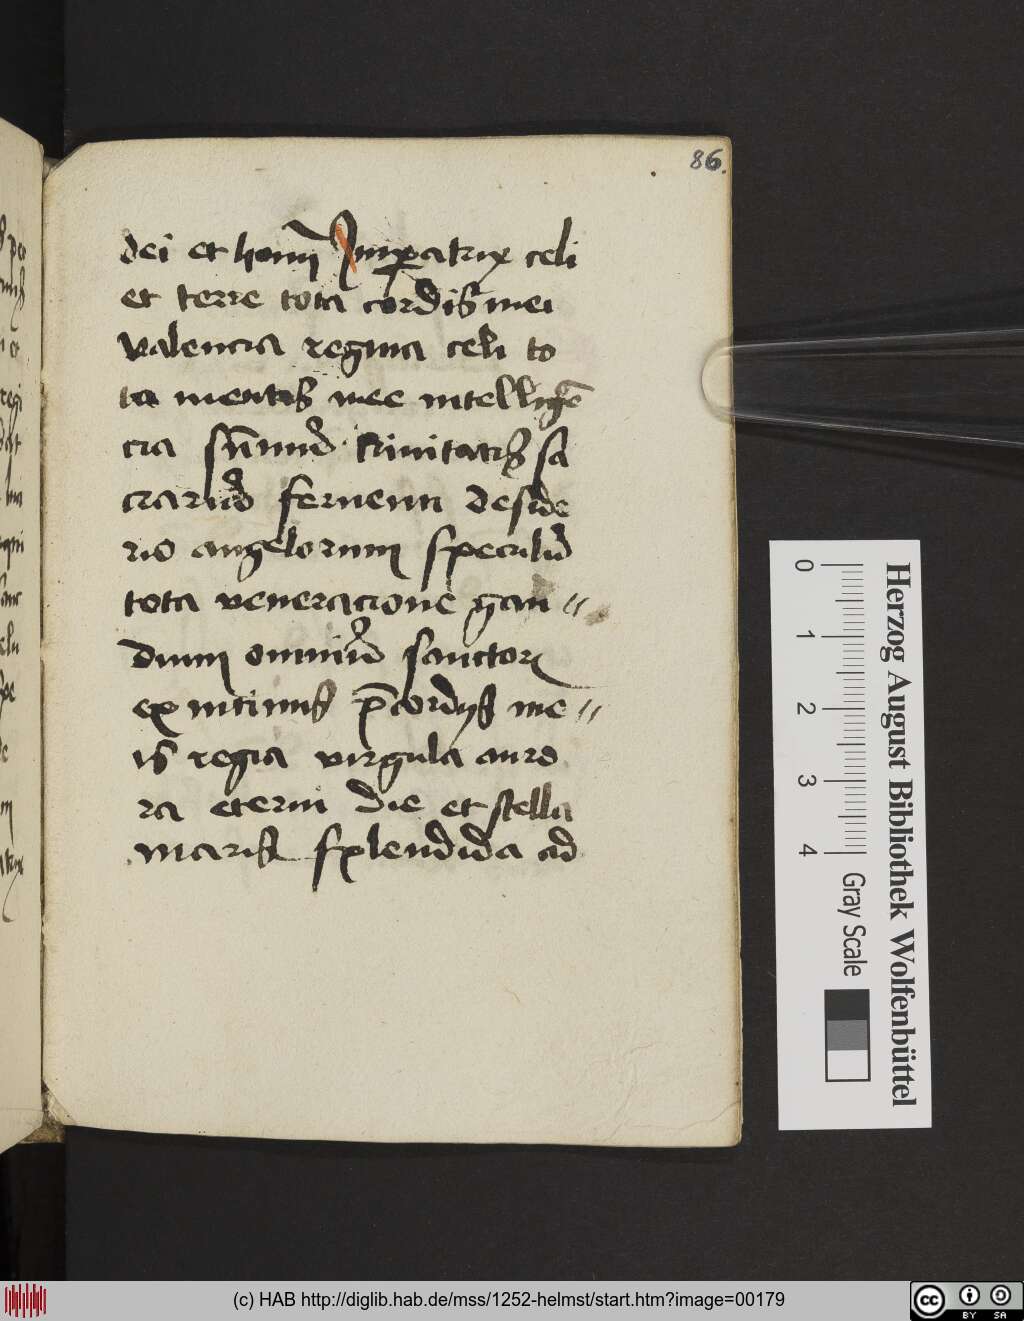 86.
dei et homi Imperatrix celi
et terre tota cordis mei
valencia regina celi to
ta mentis mee intellige
cia trinitatis sa
crariu ferventi deside
rio angelorum speculu
tota veneracione gau〃
dium omniu sanctor
ex intimis pcordijs me〃
is regia virgula auro
ra eterni die et stella
maris splendida ad
0 1 2 3 4
Gray Scale
Herzog August Bibliothek Wolfenbüttel
(c) HAB http://diglib.hab.de/mss/1252-helmst/start.htm?image=00179
cc BY SA